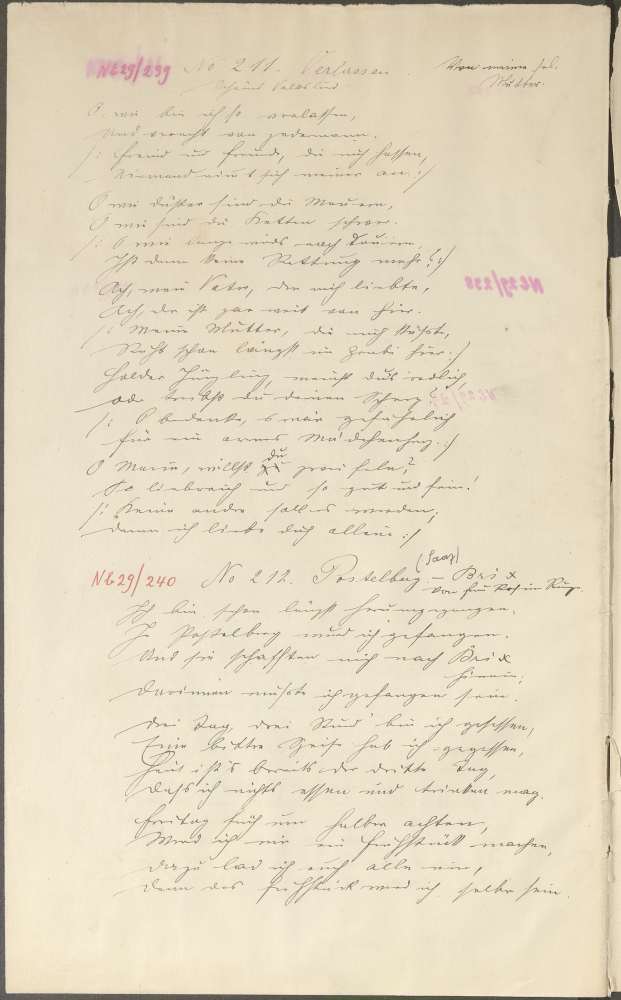 NE29/239 No 211. Verlassen. Von meiner sel.
Schönes Volkslied Mutter.
O, wie bin ich so verlassen,
Und veracht von jedermann.
/: Freind und Freunde, die mich hassen,
Niemand nimt sich meiner an. :/
O wie düster sind die Mauern,
O wie sind die Ketten schwer.
/: O wie lange wirds noch dauern,
Ist denn keine Rettung mehr? :/
Ach, mein Vater, der mich liebte,
Ach, der ist gar weit von hier.
/: Meine Mutter, die mich küsste,
Ruht schon längst im Grabe hier. :/
Holder Jüngling, meinst dus redlich,
oder treibst du deinen Scherz?
/: O bedenke, s wär gefährlich
für ein armes Mädchenherz. :/
O Marie, willst du
So liebreich und so gut und fein!
/: Keine andre soll es werden,
denn ich liebe dich allein :/
NE29/238
NE29/240 No 212. Postelberg (Saaz) – Brix
Von
Ich bin schon längst herumgegangen,
In Postelberg wurd ich gefangen.
Und sie schafften mich nach Brix
hinein;
Darinnen musste ich gefangen sein.
Drei Tag, drei Stund bin ich gesessen,
Keine bittre Speise hab ich gegessen,
Heut ist's bereits der dritte Tag,
Dass ich nichts essen und trinken mag.
Freitag früh um halber achten,
Werd ich mir ein Frühstück machen,
dazu lad ich euch alle ein,
Denn das Frühstück werd ich selber sein.